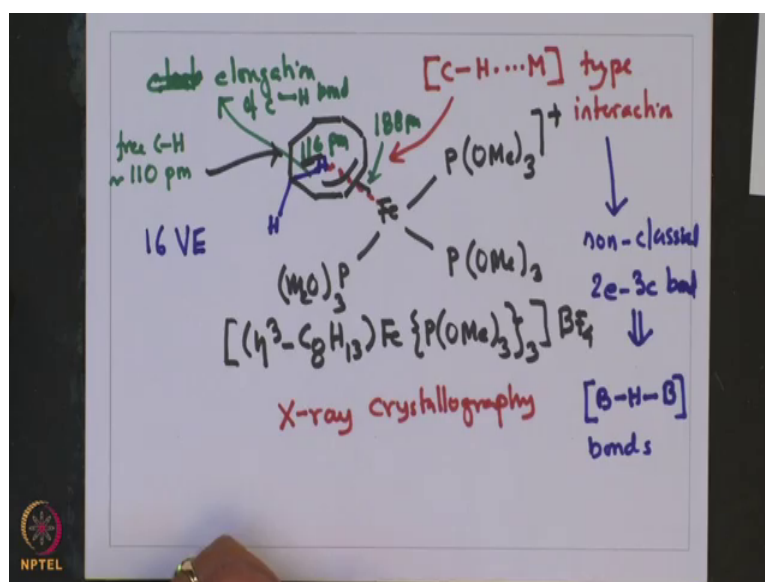 elongation
of C-H bond
[C-H....M] type
interactin
free C-H
~110 pm
116 pm
188pm
H
H
Fe
P(OMe)3]+
P(OMe)3
(MeO)3P
16 VE
non-classial
2e-3c bond
⇓
[B-H-B]
bonds
[(η3-C8H13)Fe{P(OMe)3}3]BF4
X-ray crystallography
NPTEL